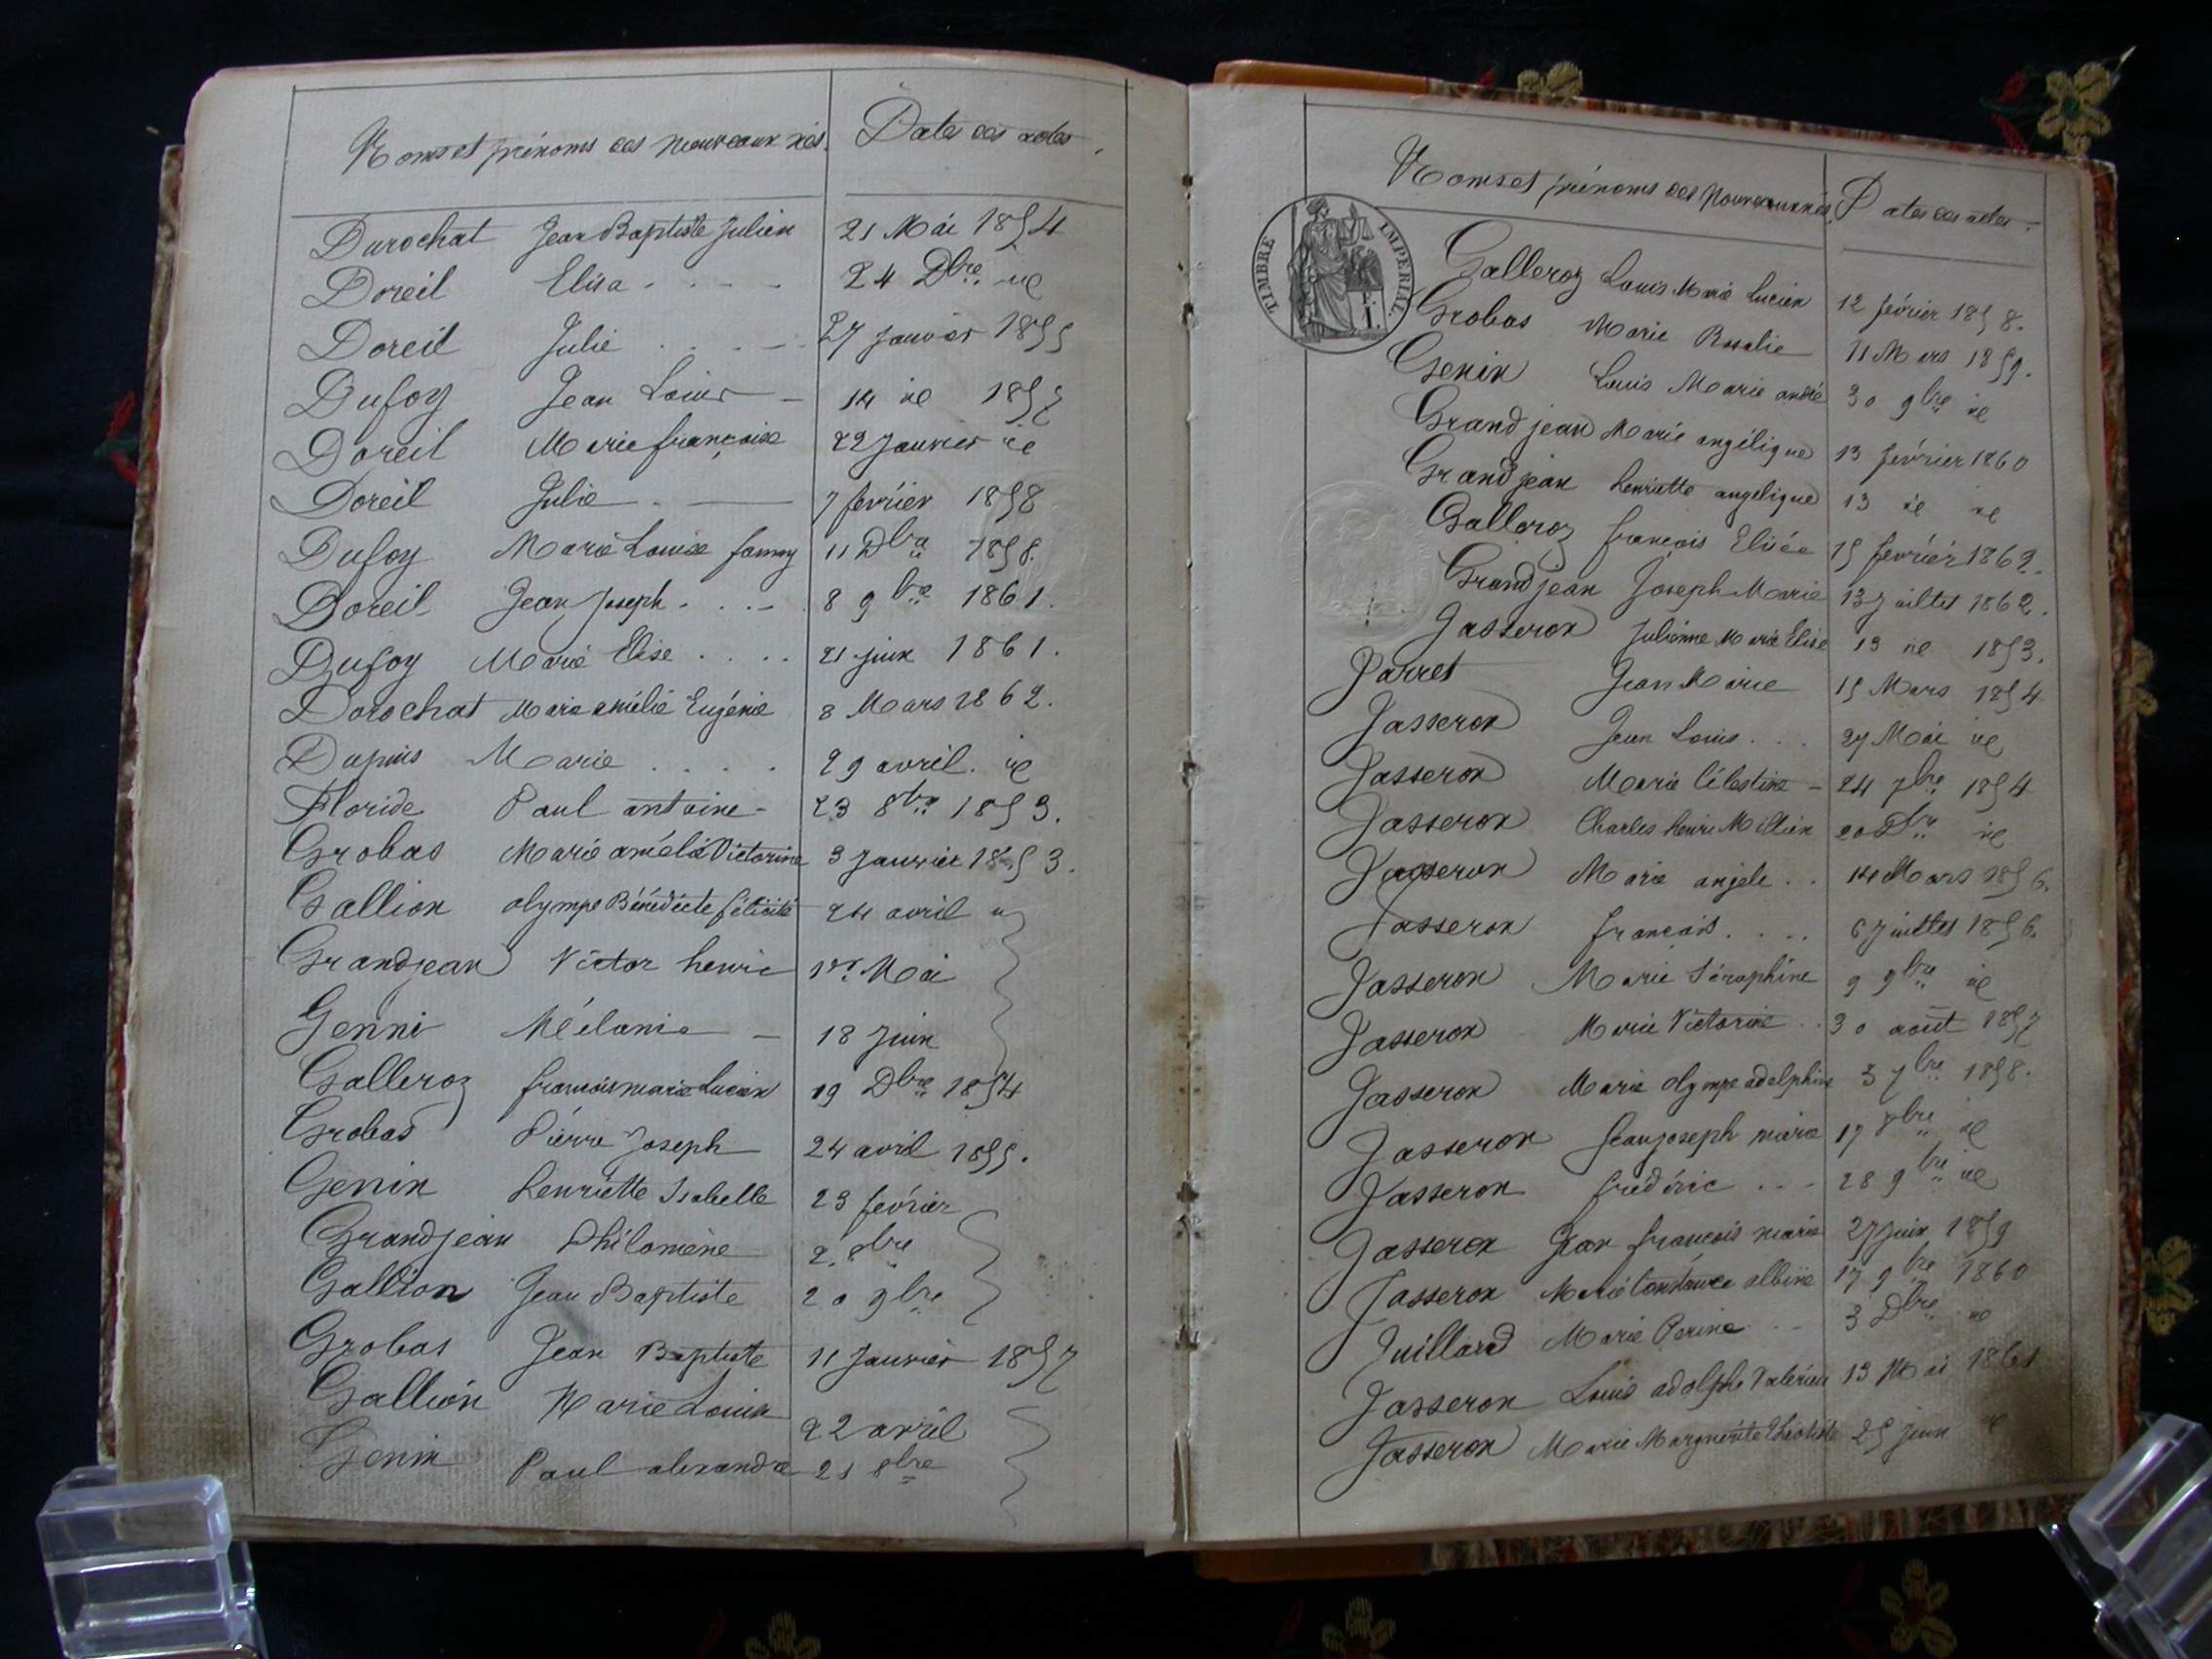 Noms et prénoms des nouveaux nés. Dates des actes.
Durochat Jean Baptiste Julien 21 Mai 1854
Doreil Elisa 24 Dbre id
Doreil Julie 27 Janvier 1855
Dufoy Jean Louis 14 id 1857
Doreil Marie françoise 22 Janvier id
Doreil Julie 7 février 1858
Dufoy Marie Louise fanny 11 Dbre 1858.
Doreil Jean Joseph 8 9bre 1861.
Dufoy Marie Elise 21 juin 1861.
Dorochat Marie amélie Eugénie 8 Mars 1862.
Dupuis Marie 29 avril. id
Floride Paul antoine 23 8bre 1853.
Grobas Marie amélie Victorine 3 Janvier 1853.
Gallion olympe Bénédicte félicité 24 avril
Grandjean Victor henri 1er Mai
Genni Mélanie 18 Juin
Galleroz françois marie Lucien 19 Dbre 1854
Grobas Pierre Joseph 24 avril 1855.
Genin henriette Isabelle 23 février
Grandjean Philomène 2 8bre
Gallion Jean Baptiste 20 9bre
Grobas Jean Baptiste 11 Janvier 1857
Gallion Marie Louise 22 avril
Genin Paul alexandre 21 8bre
Noms et prénoms des nouveaux nés. Dates des actes.
TIMBRE IMPÉRIAL.
Galleroz Louis Marie Lucien 12 février 1858.
Grobas Marie Rosalie 11 Mars 1859.
Genin Louis Marie andré 30 9bre id
Grandjean Marie angélique 13 février 1860
Grandjean henriette angelique 13 id id
Galleroz françois Elisée 15 février 1862.
Grandjean Joseph Marie 13 Juillet 1862.
Jasseron Julienne Marie Elise 13 id 1853.
Jarret Jean Marie 15 Mars 1854
Jasseron Jean Louis 27 Mai id
Jasseron Marie Célestine 24 7bre 1854
Jasseron Charles henri Millien 20 Dbre id
Jasseron Marie anjele 14 Mars 1856.
Jasseron françois 6 Juillet 1856.
Jasseron Marie Séraphine 9 9bre id
Jasseron Marie Victorine 30 août 1857
Jasseron Marie olympe adelphine 3 7bre 1858.
Jasseron Jean joseph marie 17 8bre id
Jasseron frédéric 28 9bre id
Jasseron Jean françois marie 27 juin 1859
Jasseron Marie Constance albine 17 9bre 1860
Juillard Marie Perine 3 Dbre id
Jasseron Louis adolphe Valérien 13 Mai 1861
Jasseron Marie Marguerite 25 juin id